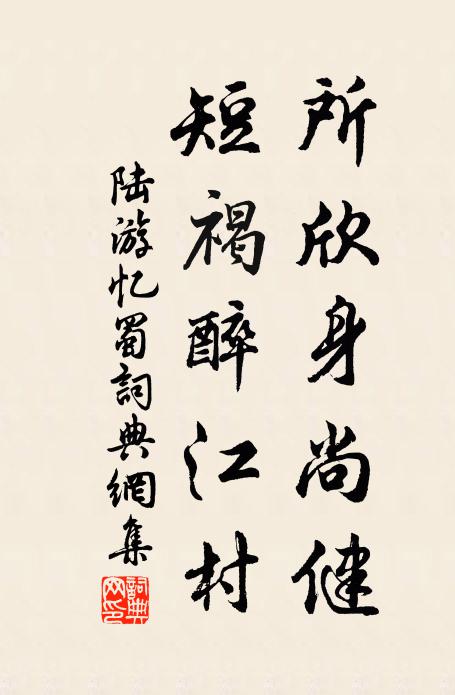 所欣身尚健
短褐醉江村
陆游忆蜀詞典網集
詞典
网印